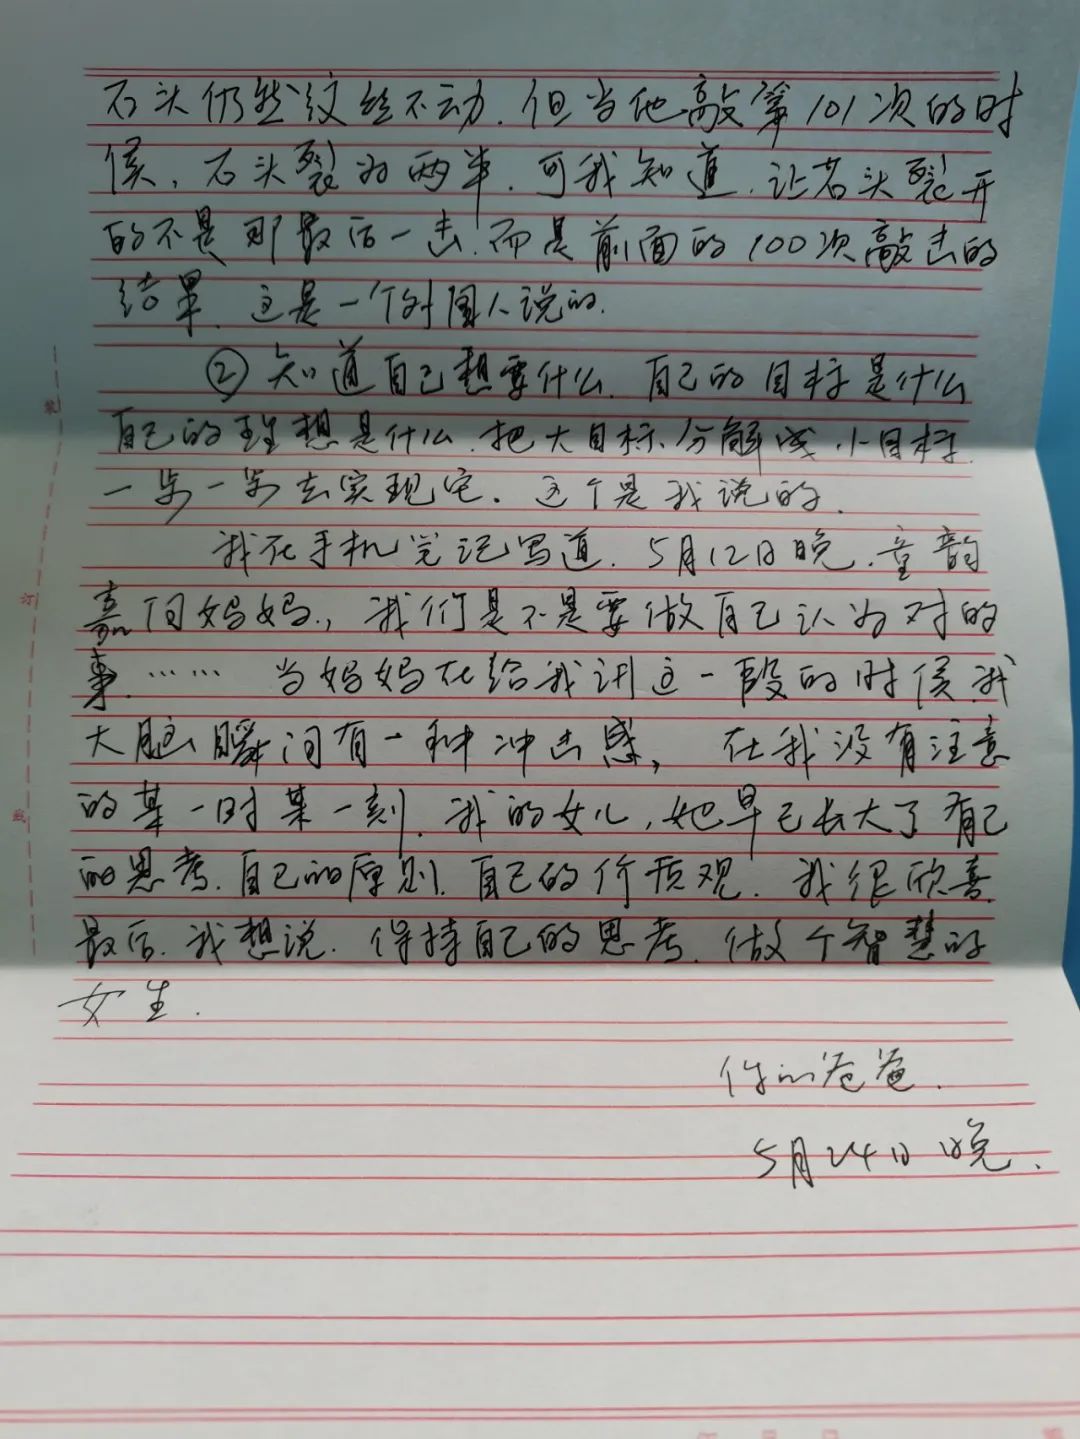 石头仍然纹丝不动.但当他敲第101次的时
侯,石头裂为两半.可我知道.让石头裂开
的不是那最后一击.而是前面的100次敲击的
结果.这是一个外国人说的.
②知道自己想要什么.自己的目标是什么
自己的理想是什么.把大目标分解成小目标.
一步一步去实现它.这个是我说的.
我在手机笔记写道.5月12日晚.童韵
嘉问妈妈.,我们是不是要做自己认为对的
事……当妈妈在给我讲这一段的时侯我
大脑瞬间有一种冲击感,在我没有注意
的某一时某一刻.我的女儿,她早已长大了有自己
的思考.自己的原则.自己的价质观.我很欣喜.
最后.我想说.保持自己的思考.做个智慧的
女生.
你的爸爸.
5月24日晚.
装
订
线